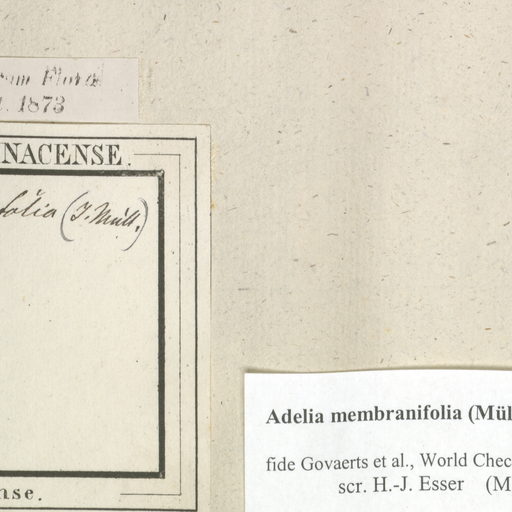 Flora
1873
NACENSE.
folia (J. Müll.)
nse.
Adelia membranifolia (Mül
fide Govaerts et al., World Chec
scr. H.-J. Esser (M